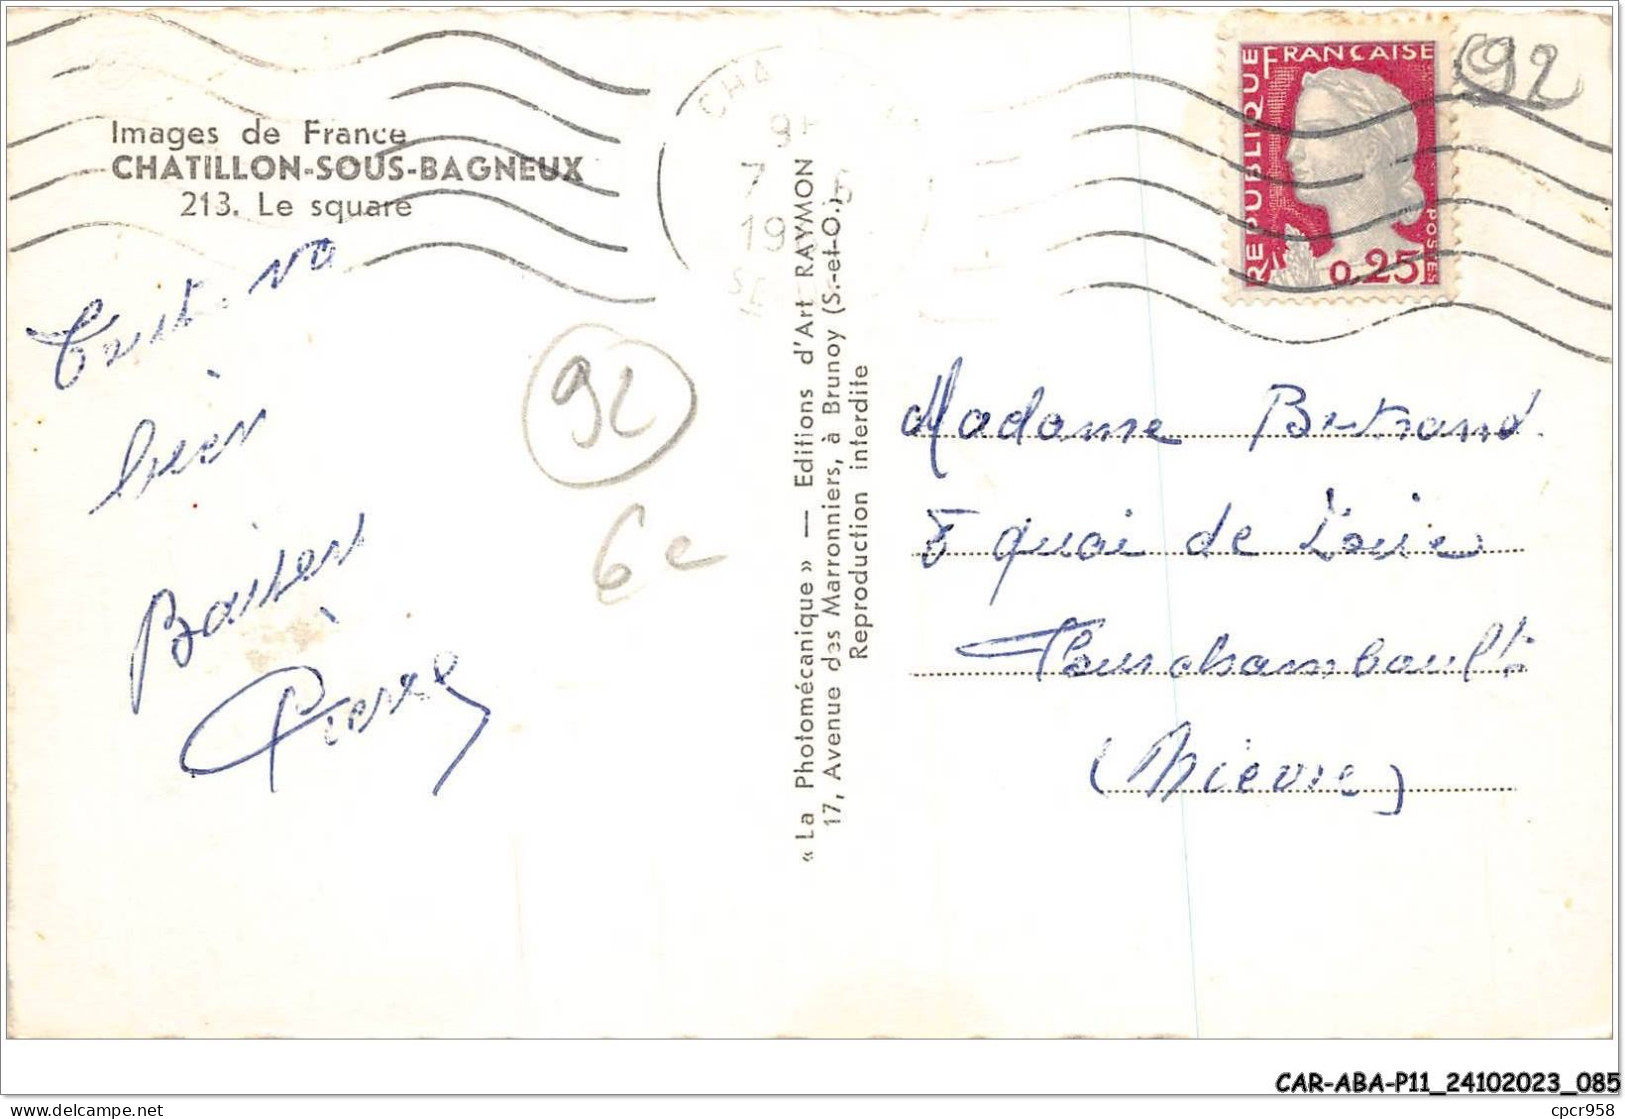 Images de France
CHATILLON-SOUS-BAGNEUX
213. Le square
Tout va
bien
Baisers
Pierre
92
6e
« La Photomécanique » — Editions d'Art RAYMON
17, Avenue des Marronniers, à Brunoy (S.-et-O.)
Reproduction interdite
CHA
7
19
REPUBLIQUE FRANÇAISE
POSTES
0,25F
92
Madame Bertrand
8 quai de Loire
Fourchambault
(Nièvre)
CAR-ABA-P11_24102023_085
delcampe.net
cpcr958